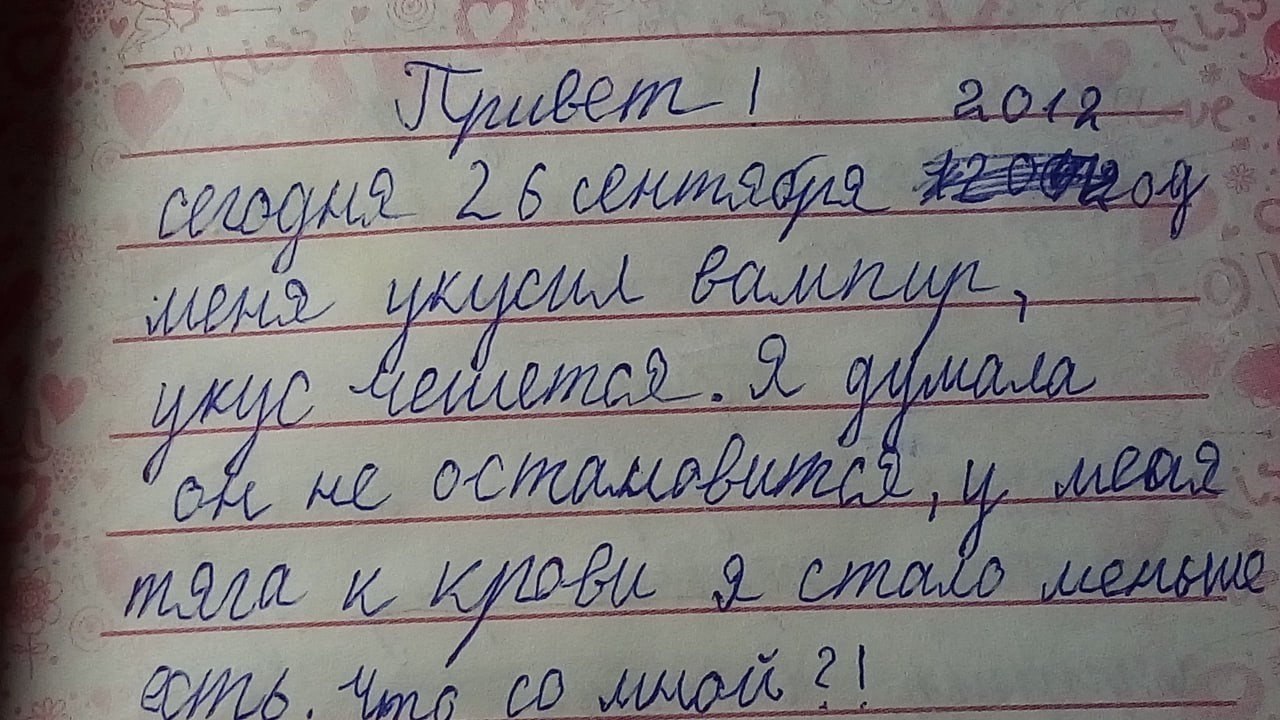 Привет! 2012
сегодня 26 сентября год
меня укусил вампир,
укус чешется. Я думала
он не остановится, у меня
тяга к крови я стало меньше
есть. Что со мной?!